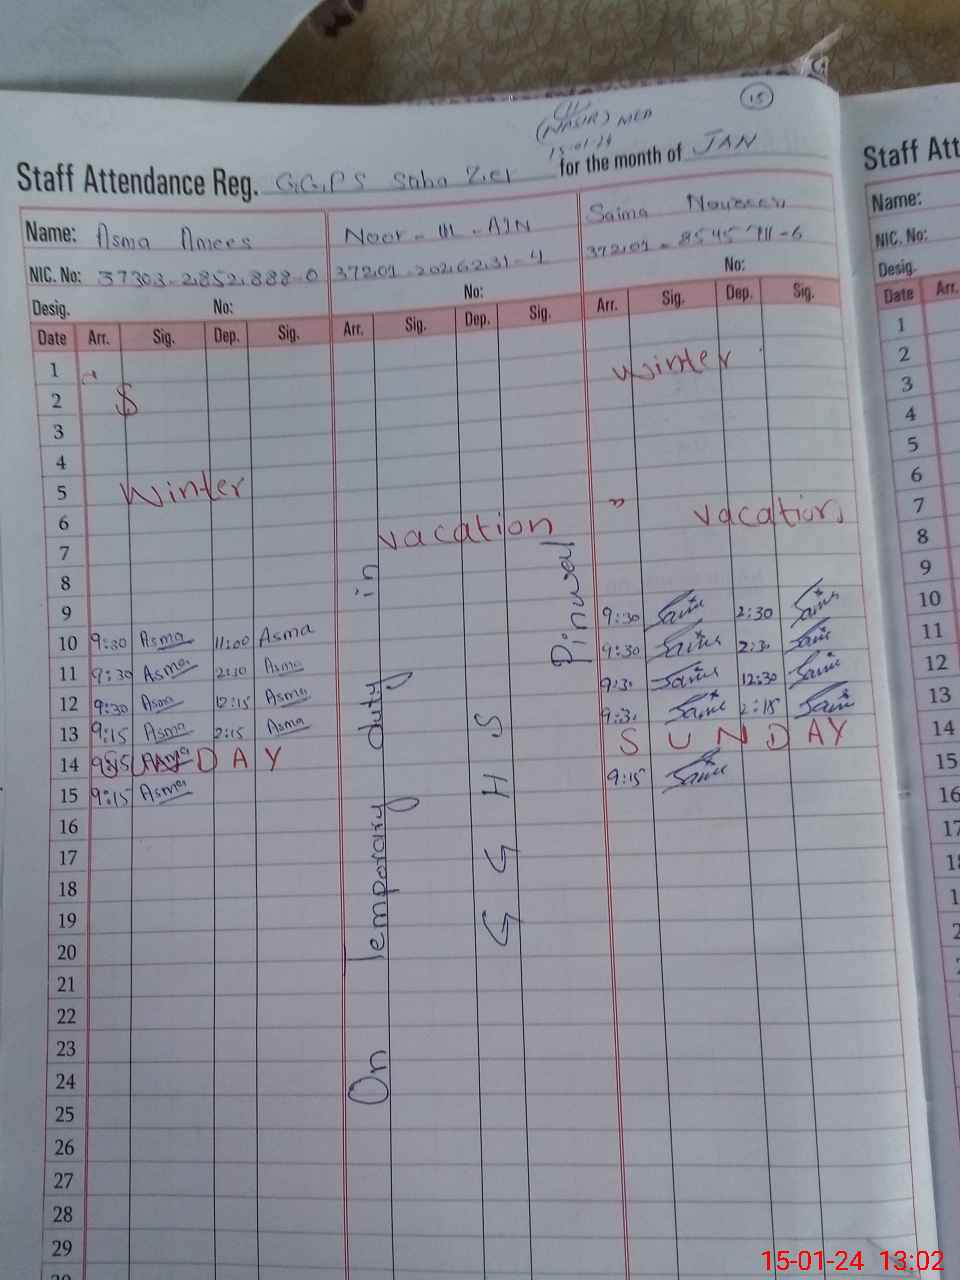 15
(NASIR) MEA
15-01-24
Staff Attendance Reg. G.G.P.S Saba Zier for the month of JAN
Staff Att
Name: Asma Amees Noor-ul-AIN Saima Noureen
Name:
NIC. No: 37303-2852888-0 37201-2026231-4 37201-8545711-6
NIC. No:
Desig. No: No: No:
Desig.
Date Arr. Sig. Dep. Sig. Arr. Sig. Dep. Sig. Arr. Sig. Dep. Sig.
Date Arr.
1
2 Winter
3
4
5 Winter
6 vacation " vacation
7
8
9
10 9:30 Asma 11:00 Asma 9:30 Saima 2:30 Saima
11 9:30 Asma 2:30 Asma 9:30 Saima 2:30 Saima
12 9:30 Asma 12:15 Asma 9:30 Saima 12:30 Saima
13 9:15 Asma 2:15 Asma 9:30 Saima 2:15 Saima
14 DAY SUNDAY
15 9:15 Asma 9:15 Saima
16
17
18
19
20
21
22
23
24
25
26
27
28
29
On Temporary duty in
GGHS
Pinwal
1
2
3
4
5
6
7
8
9
10
11
12
13
14
15
16
17
15-01-24 13:02